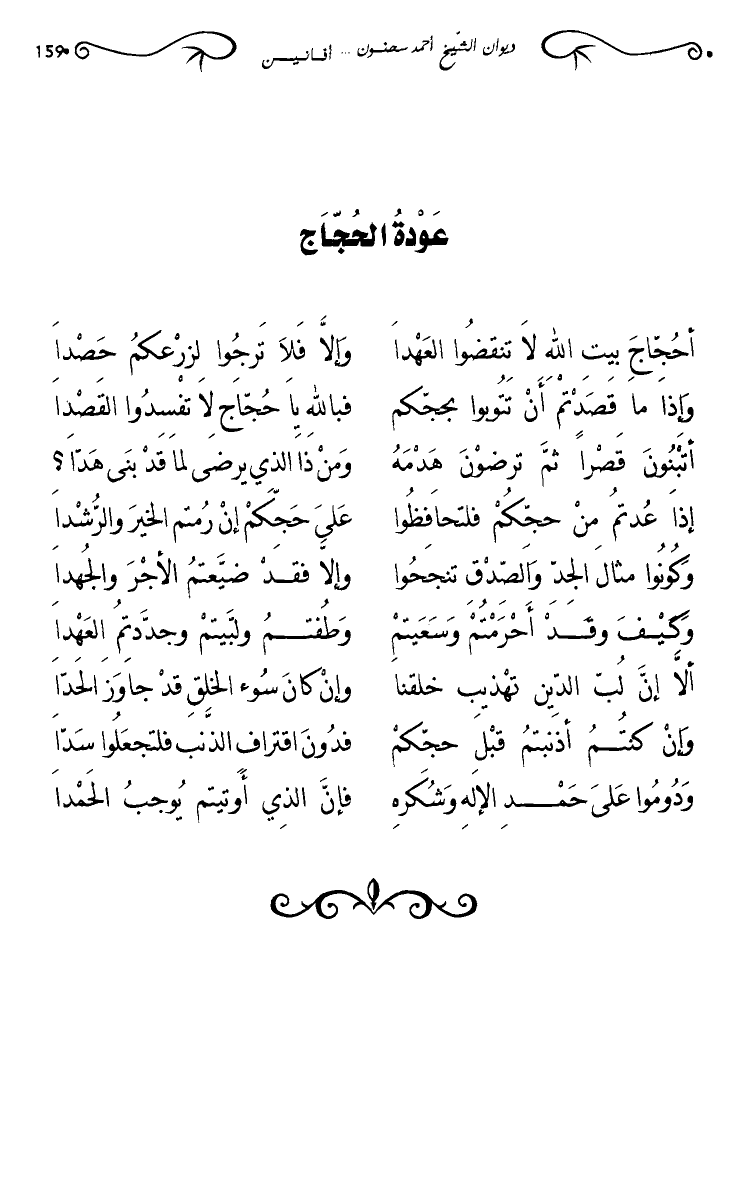 ديوان الشّيخ أحمد سحنون ... أفانيـن 159
عَوْدةُ الحُجَّاج
أحُجّاجَ بيتِ اللهِ لاَ تنقضُوا العَهْداَ وَإلاَّ فَلاَ تَرجُوا لِزرْعكمُ حَصْدا
وَإذا ما قصَدْتمْ أَنْ تَتُوبوا بحجّكم فباللهِ ياَ حُجّاج لاَ تفْسِدُوا القصْدا
أتبْنُونَ قصْراً ثمَّ ترضوْنَ هَدْمَهُ وَمَنْ ذا الذي يرضى لماَ قدْ بنى هَدّا ؟
إذا عُدتمُ مِنْ حجّكُمْ فلتحافِظُوا عَلىَ حَجّكمْ إنْ رُمتم الخيرَ والرُّشْدا
وَكُونُوا مثال الجدّ وَالصّدْق تنجحُوا وإلاَّ فقـدْ ضيَّعتمُ الأجْرَ والجُهدا
وَكَيْـفَ وقـدْ أَحْرَمْتُمْ وَسَعَيتمْ وَطُفتـمُ ولبَّيتمْ وجدَّدتمُ العَهْدا
ألاَّ إنَّ لُبّ الدّين تهْذيب خلقنا وإنْ كانَ سُوء الخلقِ قدْ جاوَز الحَدّا
وَإنْ كنتُـمُ أذنبتمُ قبْل حجّكمْ فدُونَ اقتراف الذّنب فلتجعَلُوا سَدّا
وَدُومُوا عَلىَ حَمْـدِ الإلهِ وَشُكرِه فإنَّ الذِي أُوتيتم يُوجبُ الحَمْدا